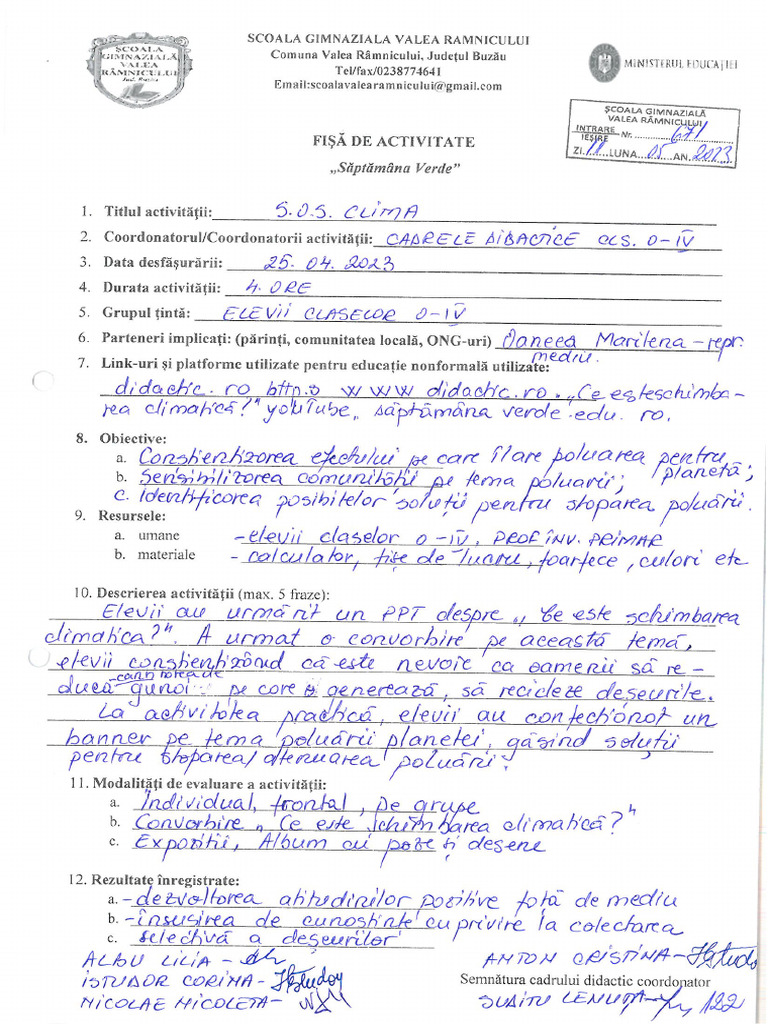 ȘCOALA GIMNAZIALA VALEA RÂMNICULUI
Jud. Buzău
ȘCOALA GIMNAZIALA VALEA RAMNICULUI
Comuna Valea Râmnicului, Județul Buzău
Tel/fax/0238774641
Email:scoalavalearamnicului@gmail.com
MINISTERUL EDUCAȚIEI
ȘCOALA GIMNAZIALĂ
VALEA RÂMNICULUI
INTRARE
IEȘIRE Nr. 671
ZI 11 LUNA 05 AN 2023
FIȘĂ DE ACTIVITATE
„Săptămâna Verde”
1. Titlul activității: S.O.S. CLIMA
2. Coordonatorul/Coordonatorii activității: CADRELE DIDACTICE CLS. 0-IV
3. Data desfășurării: 25.04.2023
4. Durata activității: 4 ORE
5. Grupul țintă: ELEVII CLASELOR 0-IV
6. Parteneri implicați: (părinți, comunitatea locală, ONG-uri) Marilena - repr.
mediu.
7. Link-uri și platforme utilizate pentru educație nonformală utilizate:
didactic.ro www didactic.ro. „Ce esteschimba-
rea climatică?" youtube, săptămâna verde.edu.ro.
8. Obiective:
a. Conștientizarea efectului pe care îl are poluarea pentru
planetă;
b. Sensibilizarea comunității pe tema poluării;
c. Identificarea posibilelor soluții pentru stoparea poluării.
9. Resursele:
a. umane -elevii claselor 0-IV, PROF ÎNV. PRIMAR
b. materiale - calculator, fișe de lucru, foarfece, culori etc
10. Descrierea activității (max. 5 fraze):
Elevii au urmărit un PPT despre „Ce este schimbarea
climatică?". A urmat o convorbire pe această temă,
elevii conștientizând că este nevoie ca oamenii să re-
cantitatea de
ducă gunoi pe care o generează, să recicleze deșeurile.
La activitatea practică, elevii au confecționat un
banner pe tema poluării planetei, găsind soluții
pentru stoparea/atenuarea poluării.
11. Modalități de evaluare a activității:
a. Individual, frontal, pe grupe
b. Convorbire „Ce este schimbarea climatică?"
c. Expoziții, Album cu poze și desene
12. Rezultate înregistrate:
a. - dezvoltarea atitudinilor pozitive față de mediu
b. - însușirea de cunoștințe cu privire la colectarea
c. selectivă a deșeurilor
ALBU LILIA - ANTON CRISTINA -
ISTUDOR CORINA - Semnătura cadrului didactic coordonator
NICOLAE NICOLETA - SUDITU LENUȚA -
122